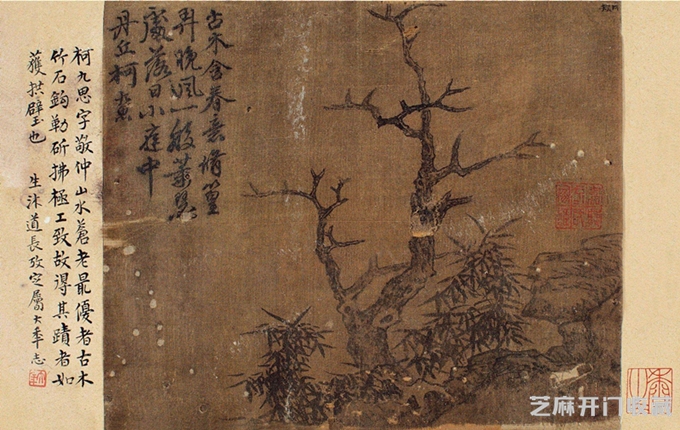 古木含春意脩篁
弄晚風一般蕭瑟
處落日小庭中
丹丘柯九思
柯九思字敬仲山水蒼老最優者古木
竹石鈎勒斫拂極工致故得其蹟者如
獲拱璧也 生沐道長攷定屬大年志
芝麻开门收藏